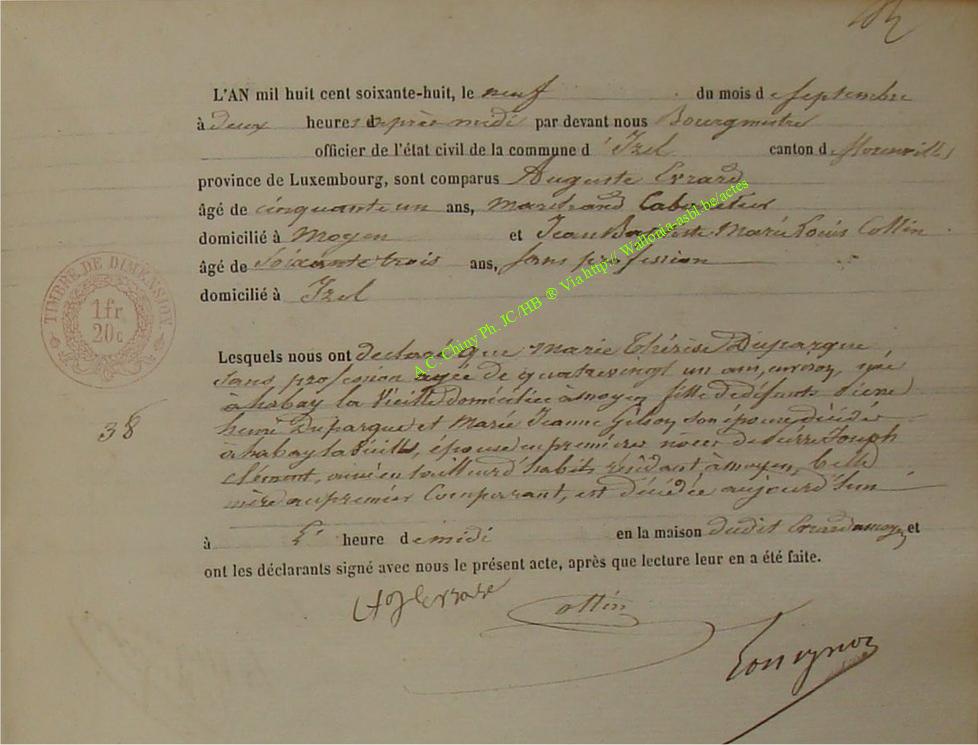 L'AN mil huit cent soixante-huit, le neuf du mois d e Septembre
à deux heures d'après midi par devant nous Bourgmestre
officier de l'état civil de la commune d 'Izel canton d e florenville
province de Luxembourg, sont comparus Auguste Evrard
âgé de cinquante un ans, marchand Cabaretier
domicilié à moyen et Jean Baptiste Marie Louis Collin
âgé de soixante trois ans, sans profession
domicilié à Izel
TIMBRE DE DIMENSION.
1 fr
20 c
Lesquels nous ont declaré que marie thérèse Duparque
sans profession agée de quatrevingt un ans, environ, née
à habay la Vieille domiciliée à moyen fille de défunts pierre
henri Duparque et Marie Jeanne Gilson son épouse décédés
à habay la Vieille, épouse en premières noces de pierre Joseph
38
clément, tailleur d'habits résidant à moyen, belle
mère au premier Comparant, est décédée aujourd'hui
à heure d e midi en la maison dudit Evrard à moyen et
ont les déclarants signé avec nous le présent acte, après que lecture leur en a été faite.
Collin
A.C. Chiny Ph. JC/HB ® Via http://Wallonia-asbl.be/actes